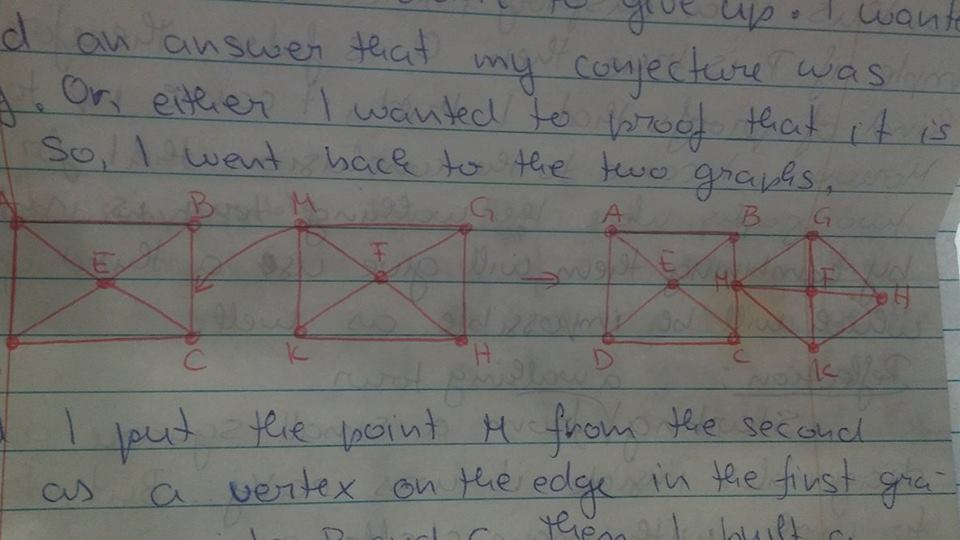 to give up. I wante
d an answer that my conjecture was
. Or, either I wanted to proof that it is
So, I went back to the two graphs,
A B M G A B G
E F E M F H
C K H D C K
I put the point M from the second
as a vertex on the edge in the first gra-
then I built a